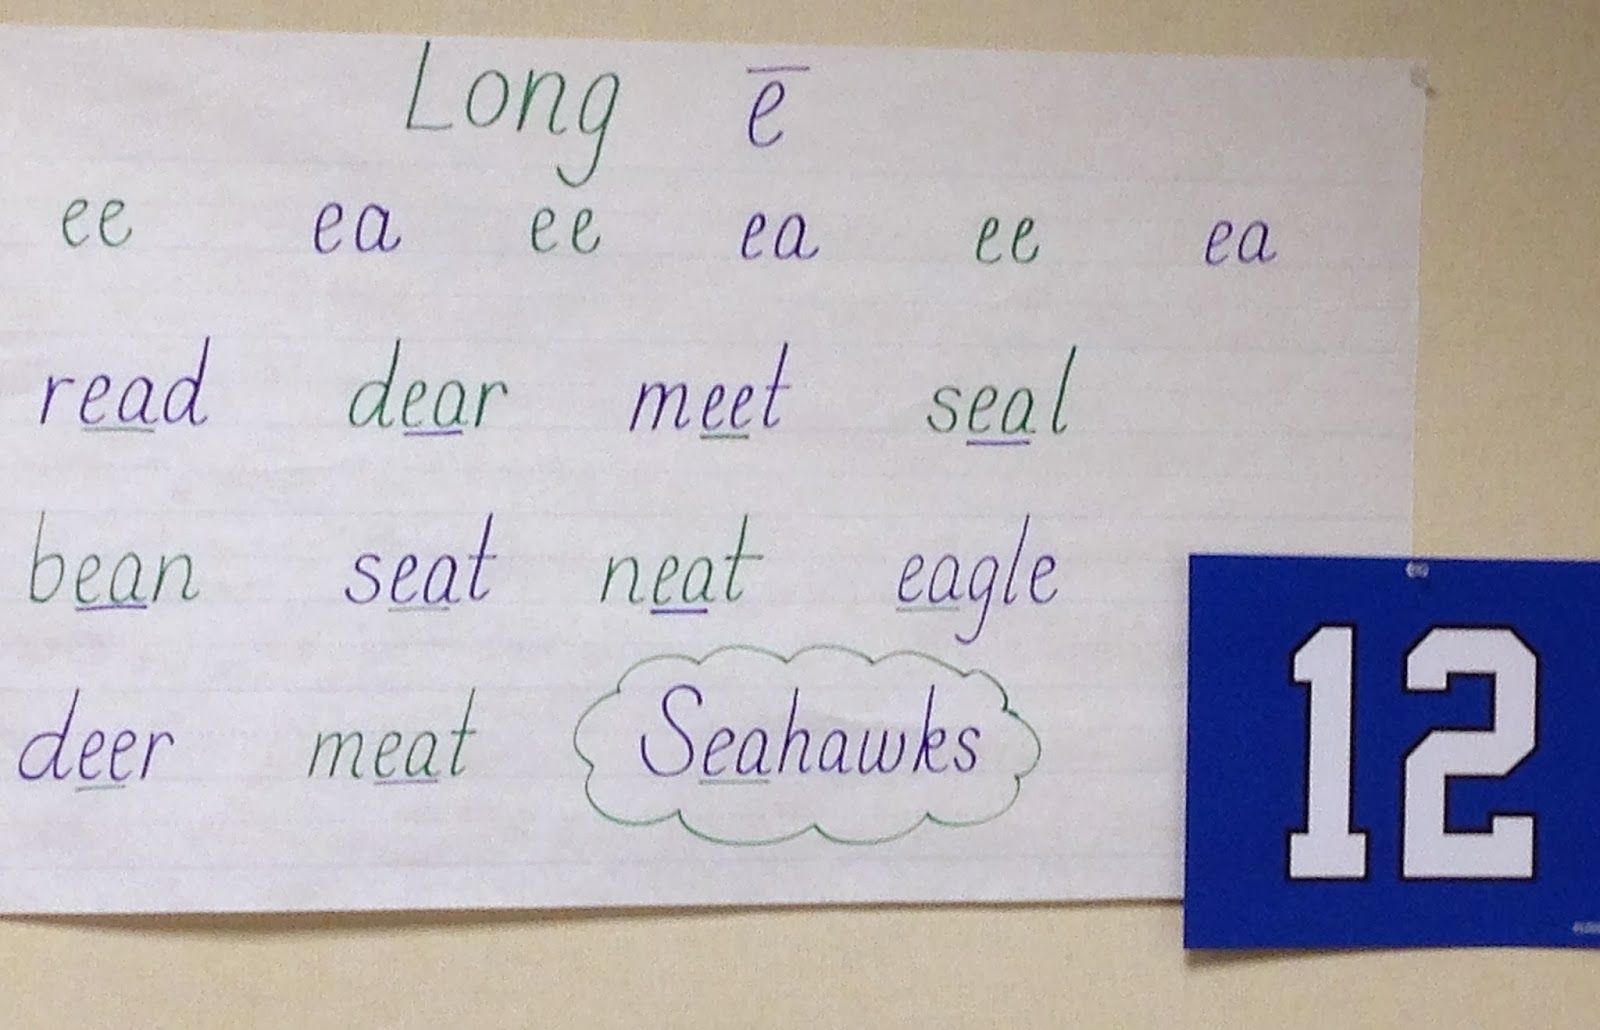 Long ē
ee ea ee ea ee ea
read dear meet seal
bean seat neat eagle
deer meat Seahawks
12